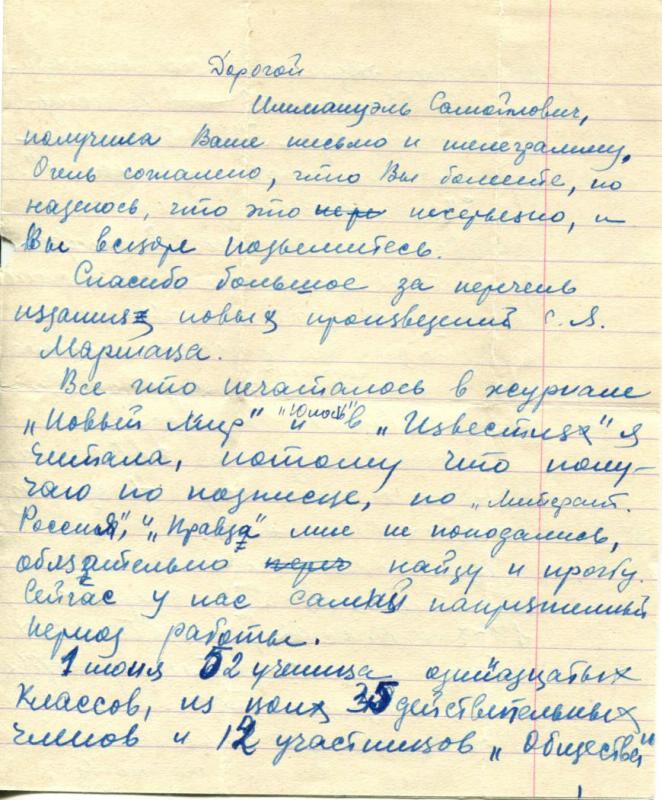 Дорогой
Иммануэль Самойлович,
получила Ваше письмо и телеграмму.
Очень сожалею, что Вы болеете, но
надеюсь, что это несерьезно, и
Вы вскоре поднимитесь.
Спасибо большое за перечень
издания новых произведений С. Я.
Маршака.
Все что печаталось в журнале
„Новый Мир" и "Юность" в „Известиях" я
читала, потому что полу-
чаю по подписке, но „Литерат.
Россия", и „Правда" мне не поподались,
обязательно найду и прочту.
Сейчас у нас самый напряженный
период работы.
1 июня 52 ученика одинадцатых
классов, из коих 35 действительных
членов и 12 участников „Общества"